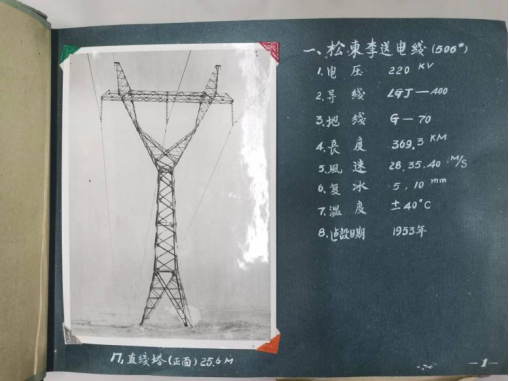 一、松東李送电线(506#)
1.电 压 220 KV
2.导 线 LGJ—400
3.地 线 G—70
4.長 度 369.3 KM
5.風 速 28,35,40 M/S
6.复 冰 5,10 mm
7.溫 度 ±40°C
8.建設日期 1953年
直线塔(正面)25.6 M
—1—